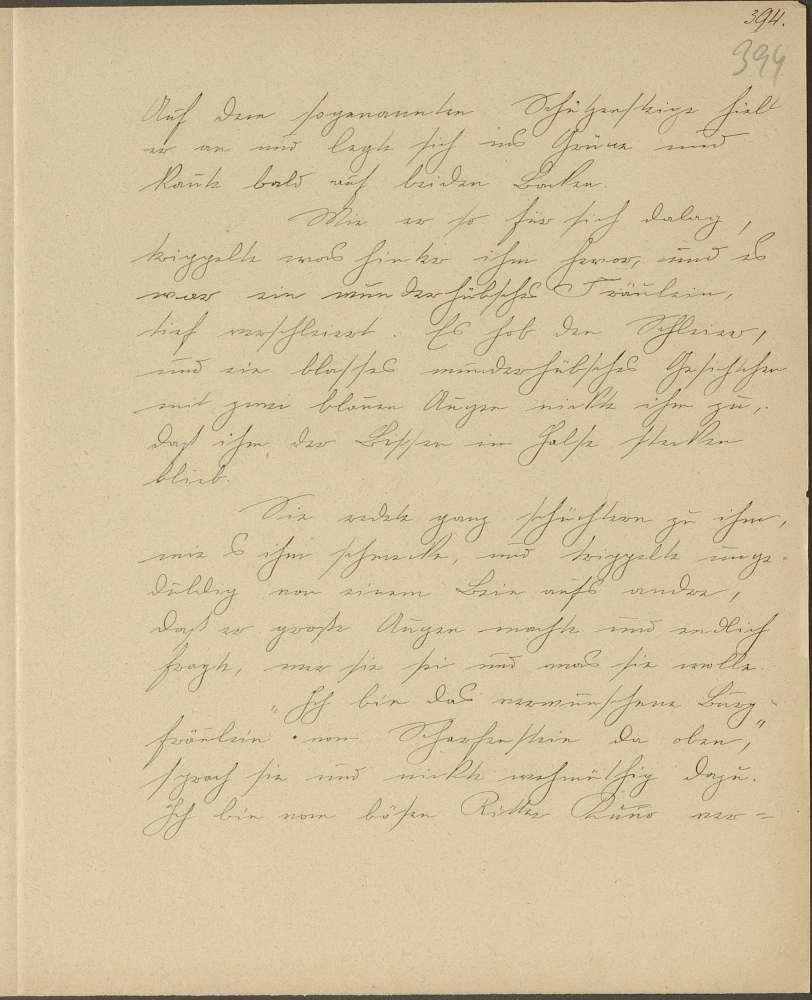 394.
394
Auf dem sogenannten Schützensteige hielt
er an und legte sich ins Grüne und
kaute bald auf beiden Backen.
Wie er so für sich dalag,
trippelte was hinter ihm hervor, und es
war ein wunderhübsches Fräulein,
tief verschleiert. Es hob den Schleier,
und ein blasses wunderhübsches Gesichtchen
mit zwei blauen Augen nickte ihm zu,
daß ihm der Bissen im Halse stecken
blieb.
Sie redete ganz schüchtern zu ihm,
wie's ihm schmecke, und trippelte unge-
duldig von einem Bein aufs andre,
daß er große Augen machte und endlich
fragte, wer sie sei und was sie wolle.
"Ich bin das verwunschene Burg-
fräulein vom Scharfenstein da oben,"
sprach sie und nickte wehmüthig dazu.
Ich bin vom bösen Ritter Kuno ver-